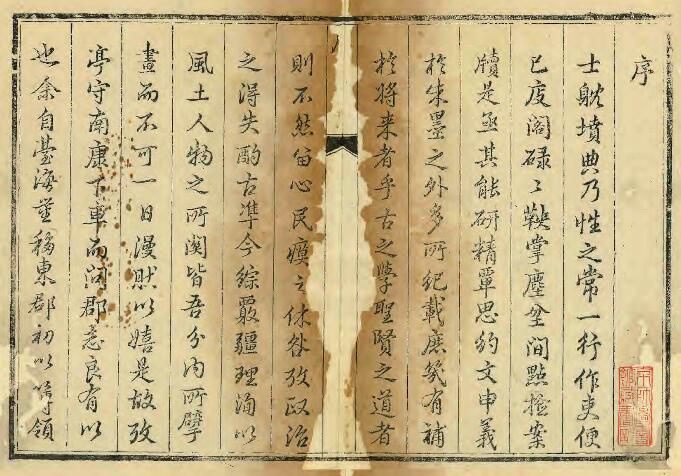 序
士躭墳典乃性之常一行作吏便
已庋阁碌〻鞅掌塵坌间點撿案
牘是亟其能研精覃思約文申義
於朱墨之外多所紀載庶幾有補
於将来者乎古之學聖賢之道者
則不然留心民瘼之休咎攷政治
之得失酌古準今綜覈疆理以
風土人物之所関皆吾分内所擘
畫而不可一日漫然以嬉是故攷
亭守南康下車而问郡志良有以
也余自臺海量移東郡初以簿領